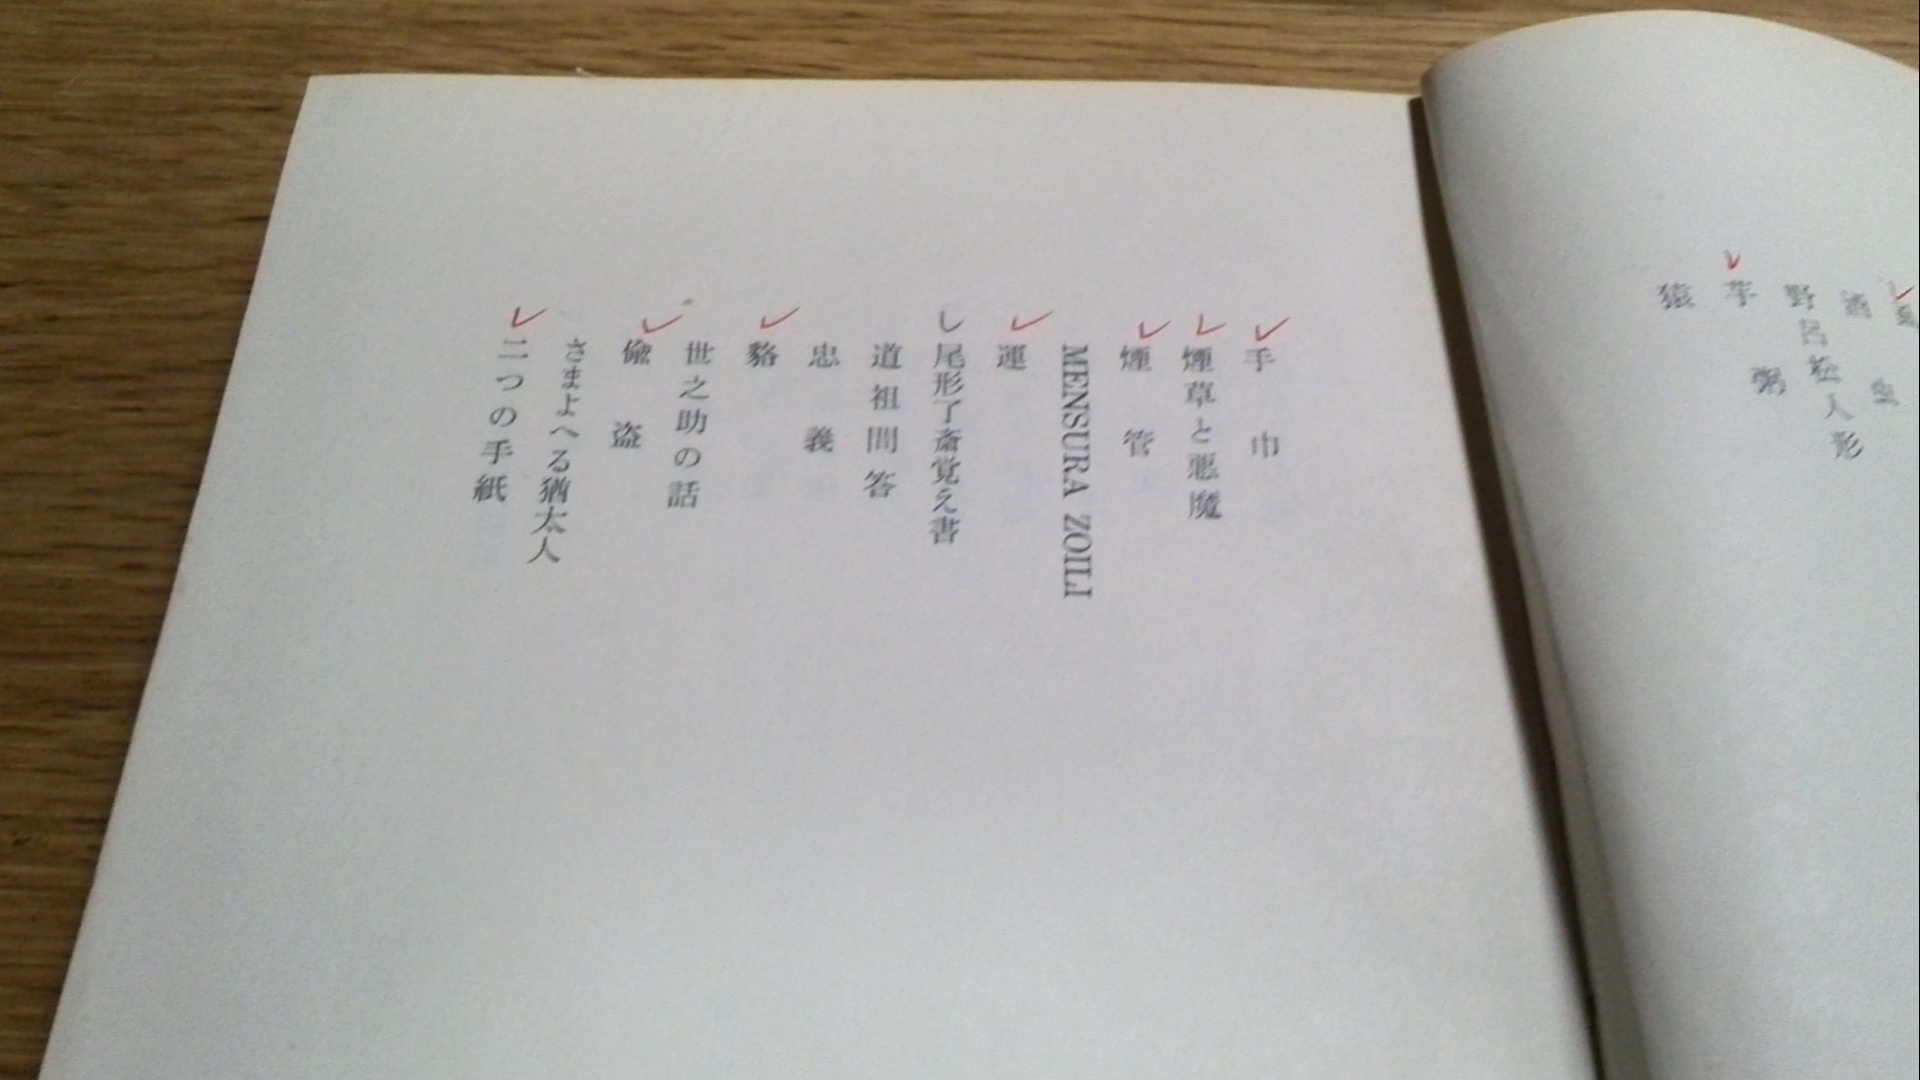 酒虫
野呂松人形
芋粥
猿
手巾
煙草と悪魔
煙管
MENSURA ZOILI
運
尾形了斎覚え書
道祖問答
忠義
貉
世之助の話
偸盗
さまよへる猶太人
二つの手紙